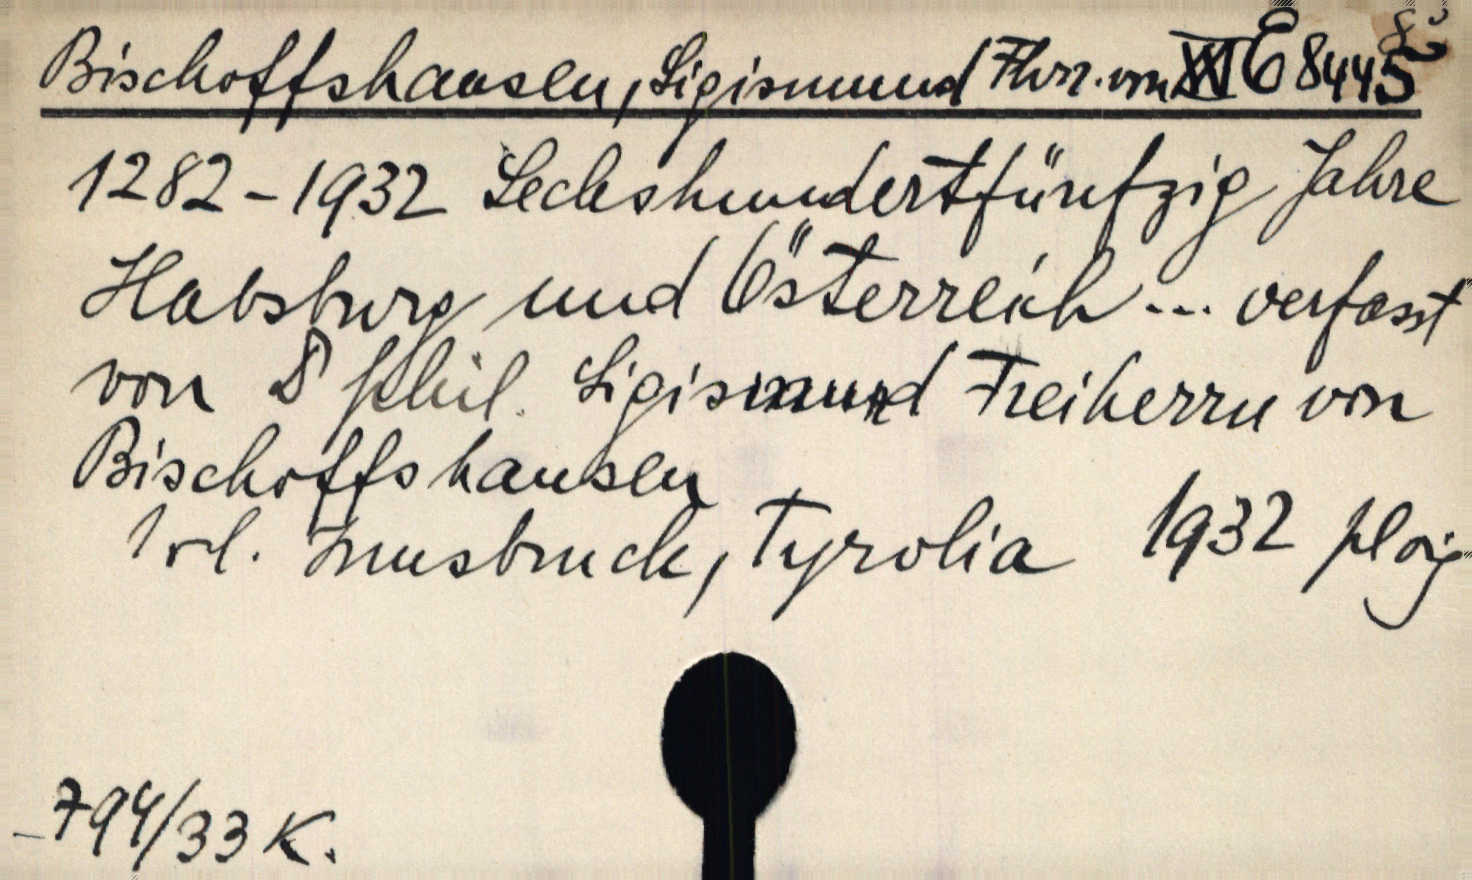 Bischoffshausen, Sigismund Fhrr. von XXI E 8445 8°
1282-1932 Sechshundertfünfzig Jahre
Habsburg und Österreich... verfasst
von D phil. Sigismund Freiherrn von
Bischoffshausen
1 vol. Innsbruck, Tyrolia 1932
794/33 K.